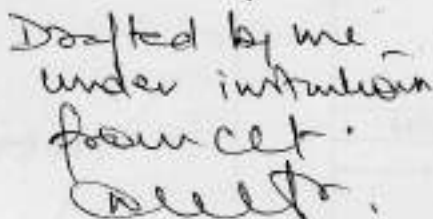 Drafted by me
under instruction
from clt.